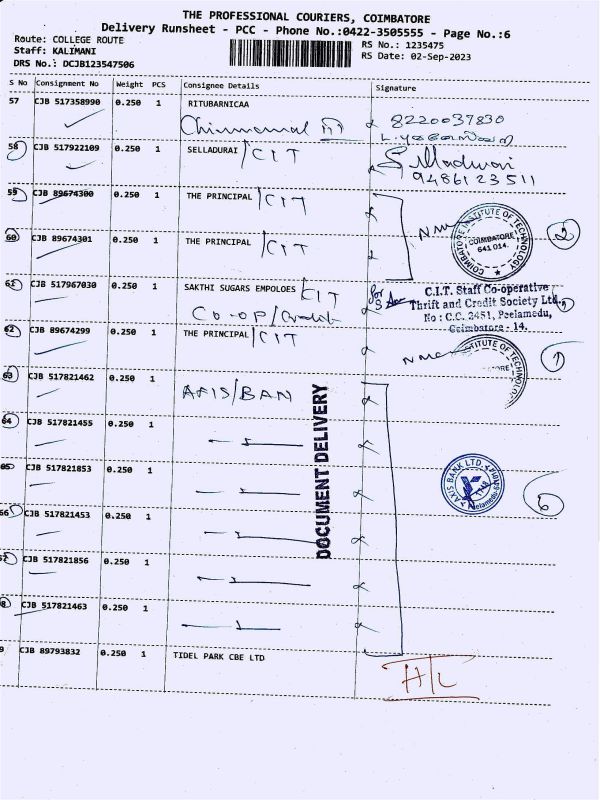 THE PROFESSIONAL COURIERS, COIMBATORE
Delivery Runsheet - PCC - Phone No.:0422-3505555 - Page No.:6
Route: COLLEGE ROUTE
Staff: KALIMANI
DRS No.: DCJB123547506
RS No.: 1235475
RS Date: 02-Sep-2023
S No Consignment No Weight PCS Consignee Details Signature
57 CJB 517358990 0.250 1 RITUBARNICAA
8220037830
58 CJB 517922109 0.250 1 SELLADURAI /CIT
9486123511
59 CJB 89674300 0.250 1 THE PRINCIPAL /CIT
60 CJB 89674301 0.250 1 THE PRINCIPAL /CIT
COIMBATORE INSTITUTE OF TECHNOLOGY
COIMBATORE
641 014.
2
61 CJB 517967030 0.250 1 SAKTHI SUGARS EMPLOEES /CIT
Co-op/Credit
for
C.I.T. Staff Co-operative
Thrift and Credit Society Ltd.,
No : C.C. 2451, Peelamedu,
Coimbatore - 14.
62 CJB 89674299 0.250 1 THE PRINCIPAL /CIT
TUTE OF TECHNOLO
ORE
1
63 CJB 517821462 0.250 1 AXIS/BAN
64 CJB 517821455 0.250 1
65 CJB 517821853 0.250 1
AXIS BANK LTD.
6
66 CJB 517821453 0.250 1
67 CJB 517821856 0.250 1
8 CJB 517821463 0.250 1
DOCUMENT DELIVERY
9 CJB 89793832 0.250 1 TIDEL PARK CBE LTD